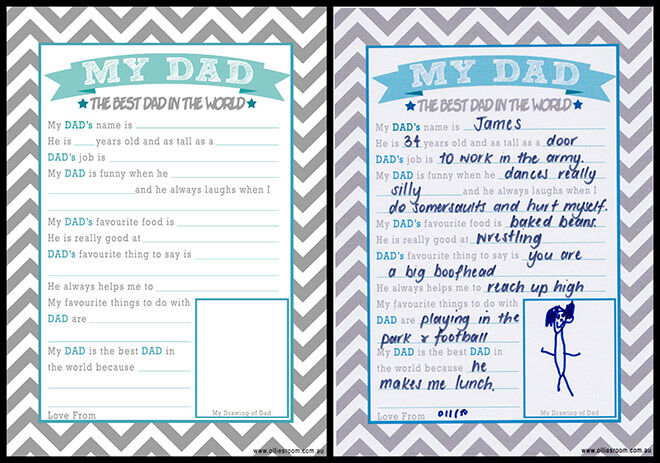 MY DAD
THE BEST DAD IN THE WORLD
My DAD's name is
He is years old and as tall as a
DAD's job is
My DAD is funny when he
and he always laughs when I
My DAD's favourite food is
He is really good at
DAD's favourite thing to say is
He always helps me to
My favourite things to do with
DAD are
My DAD is the best DAD in
the world because
Love From
My Drawing of Dad
www.olliesroom.com.au
MY DAD
THE BEST DAD IN THE WORLD
My DAD's name is James
He is 34 years old and as tall as a door
DAD's job is to work in the army.
My DAD is funny when he dances really
silly and he always laughs when I
do somersaults and hurt myself.
My DAD's favourite food is baked beans.
He is really good at wrestling
DAD's favourite thing to say is you are
a big boofhead
He always helps me to reach up high
My favourite things to do with
DAD are playing in the
park & football
My DAD is the best DAD in
the world because he
makes me lunch.
Love From
My Drawing of Dad
www.olliesroom.com.au